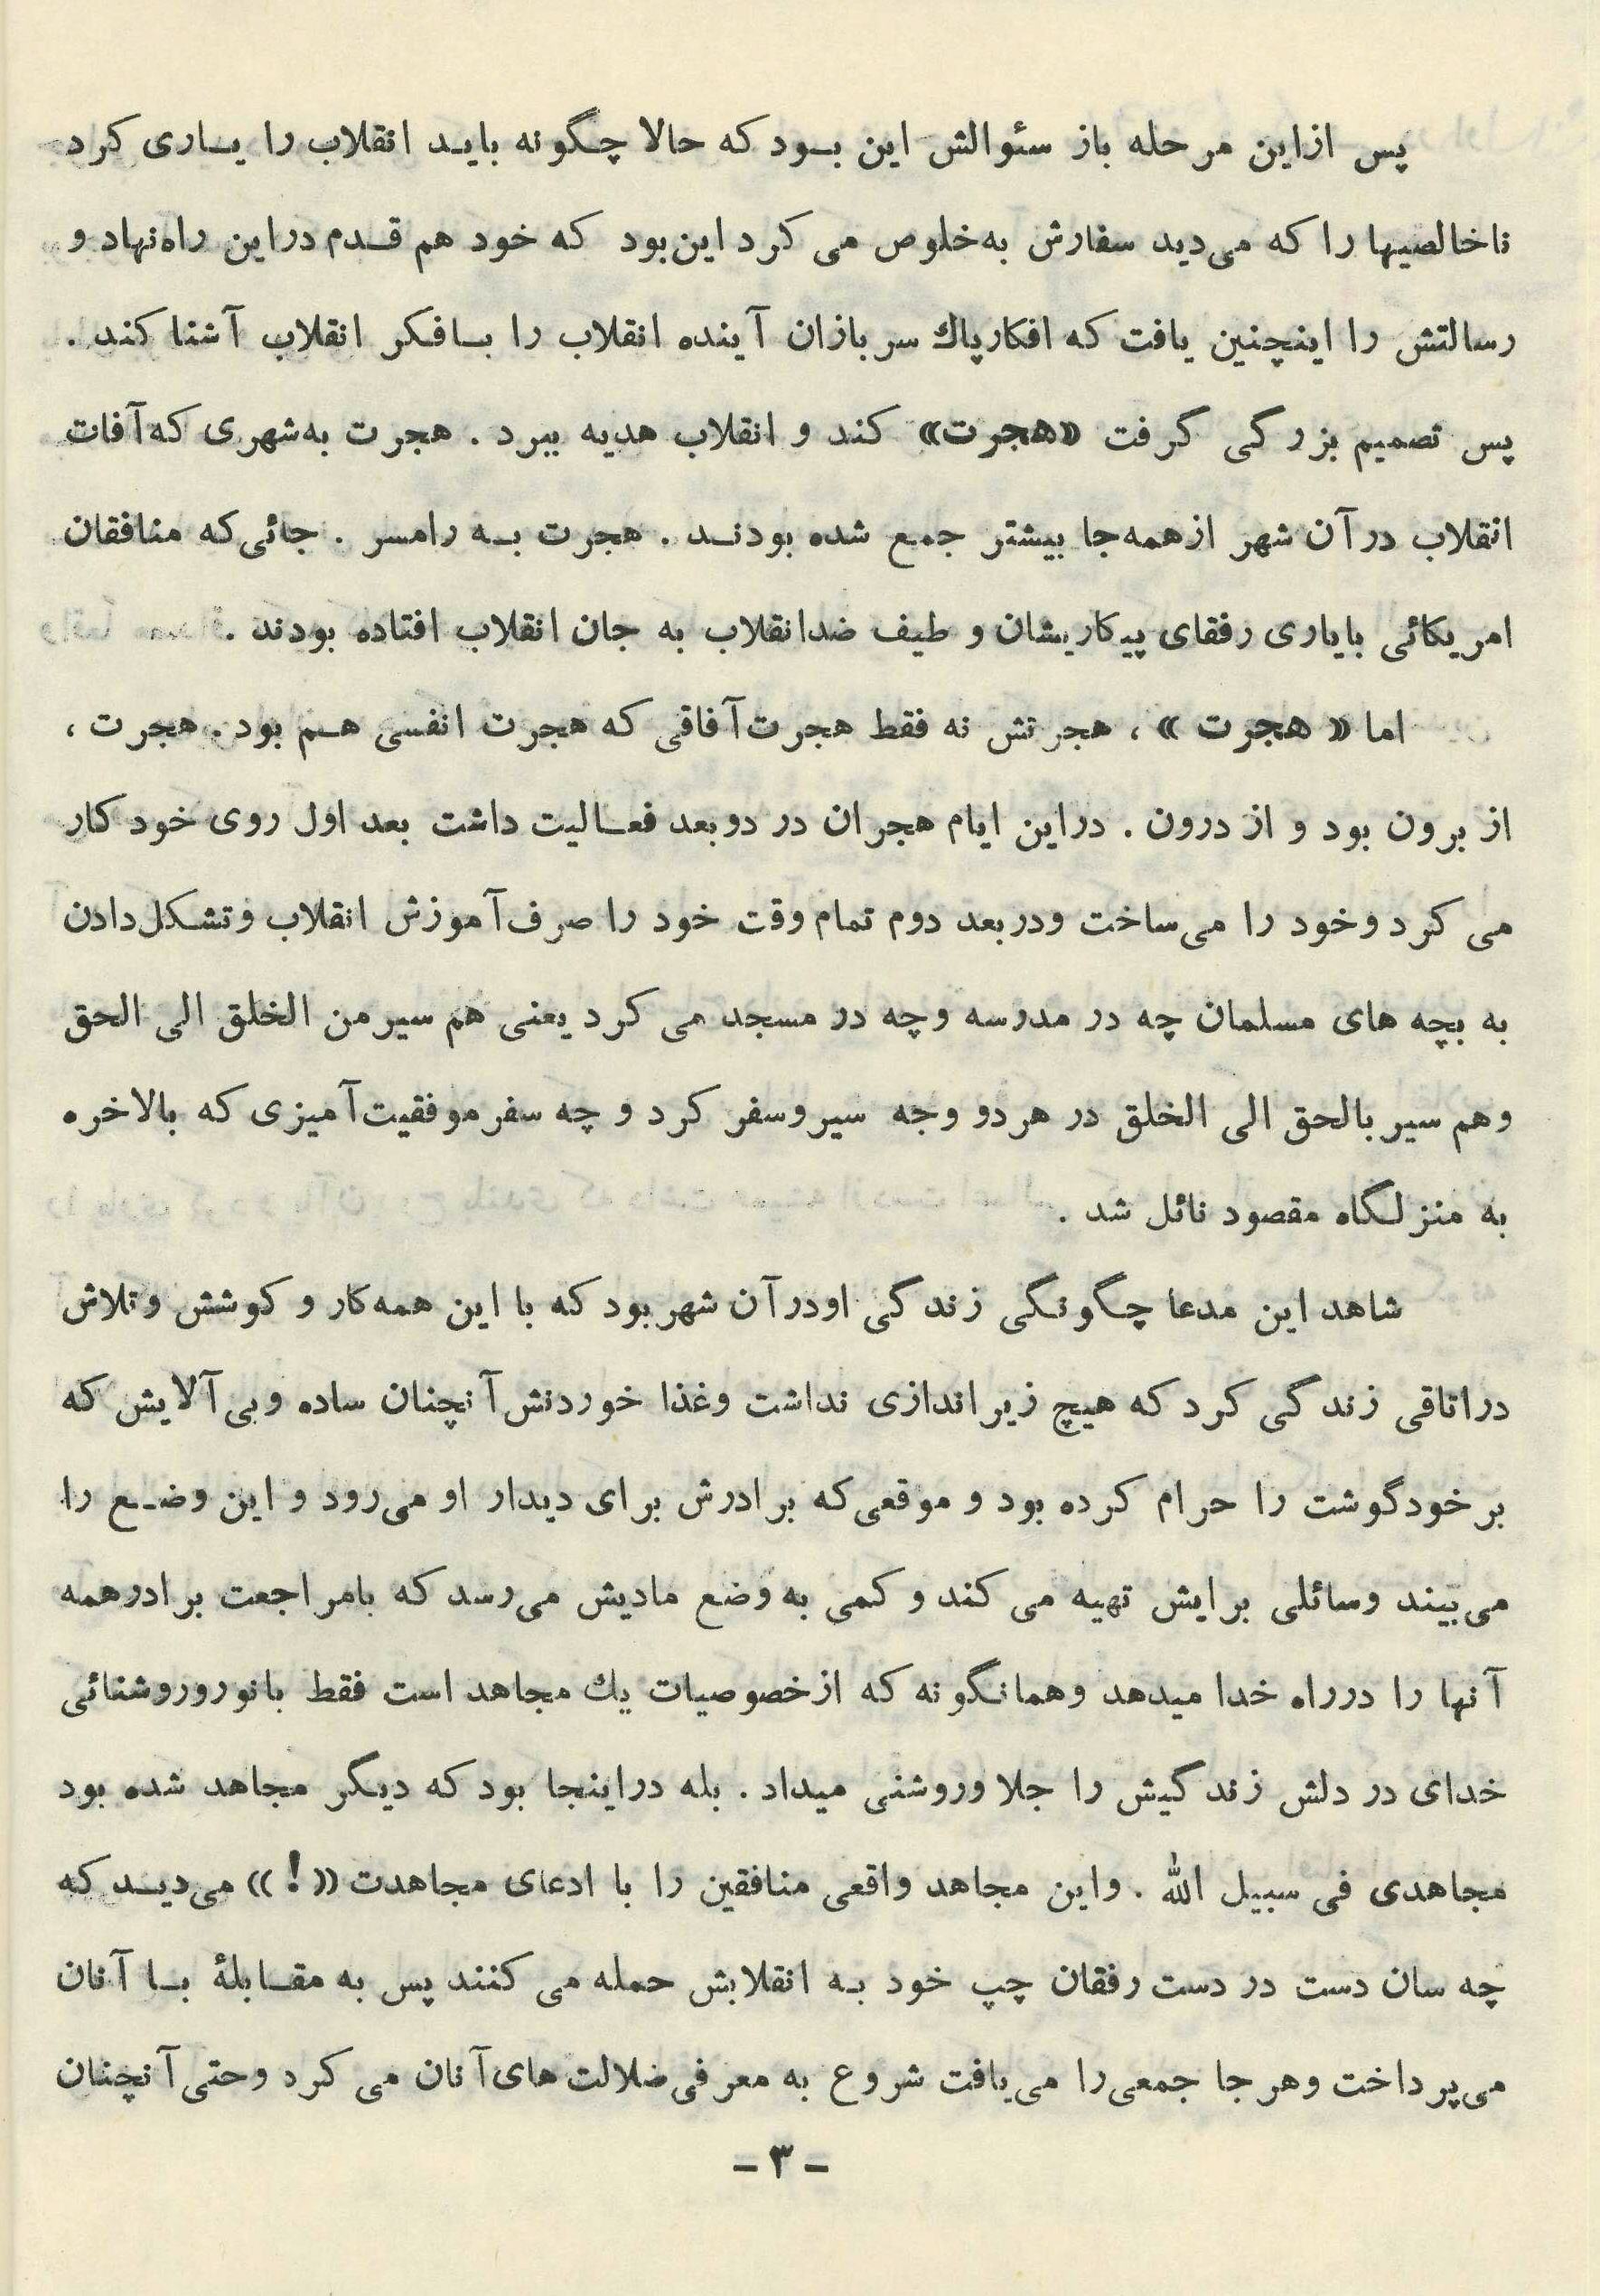 پس ازاین مرحله باز سئوالش این بود که حالا چگونه باید انقلاب را یاری کرد
ناخالصیها را که می‌دید سفارش به‌خلوص می کرد این‌بود که خود هم قدم دراین راه‌نهاد و
رسالتش را اینچنین یافت که افکارپاك سربازان آینده انقلاب را بافکر انقلاب آشنا کند .
پس تصمیم بزرگی گرفت «هجرت» کند و انقلاب هدیه ببرد . هجرت به‌شهری که‌آفات
انقلاب درآن شهر ازهمه‌جا بیشتر جمع شده بودند . هجرت به رامسر . جائی‌که منافقان
امریکائی بایاری رفقای پیکاریشان و طیف ضدانقلاب به جان انقلاب افتاده بودند .
اما « هجرت » ، هجرتش نه فقط هجرت‌آفاقی که هجرت انفسی هم بود . هجرت ،
از برون بود و از درون . دراین ایام هجران در دوبعد فعالیت داشت بعد اول روی خود کار
می کرد وخود را می‌ساخت ودربعد دوم تمام وقت خود را صرف‌آموزش انقلاب وتشکل‌دادن
به بچه های مسلمان چه در مدرسه وچه در مسجد می کرد یعنی هم سیرمن الخلق الی الحق
وهم سیر بالحق الی الخلق در هردو وجه سیروسفر کرد و چه سفرموفقیت‌آمیزی که بالاخره
به منزلگاه مقصود نائل شد .
شاهد این مدعا چگونگی زندگی اودرآن شهربود که با این همه‌کار و کوشش وتلاش
دراتاقی زندگی کرد که هیچ زیراندازی نداشت وغذا خوردنش‌آنچنان ساده وبی‌آلایش که
برخودگوشت را حرام کرده بود و موقعی‌که برادرش برای دیدار او می‌رود و این وضع را
می‌بیند وسائلی برایش تهیه می کند و کمی به وضع مادیش می‌رسد که بامراجعت برادرهمه
آنها را درراه خدا میدهد وهمانگونه که ازخصوصیات یك مجاهد است فقط بانوروروشنائی
خدای در دلش زندگیش را جلا وروشنی میداد . بله دراینجا بود که دیگر مجاهد شده بود
مجاهدی فی سبیل الله . واین مجاهد واقعی منافقین را با ادعای مجاهدت «!» می‌دید که
چه سان دست در دست رفقان چپ خود به انقلابش حمله می کنند پس به مقابلۀ با آنان
می‌پرداخت وهرجا جمعی‌را می‌یافت شروع به معرفی‌ضلالت‌های‌آنان می کرد وحتی‌آنچنان
- ۳ -